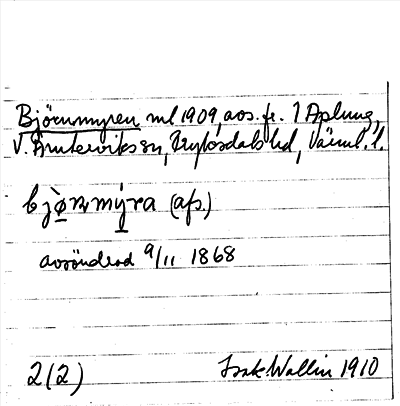 Björnmyren ml 1909, avs. fr. 1 Aplung,
V. Ämterviks sn, Fryksdals hd, Värml. l.
bjø̀ṇmýra (afs.)
avsöndrad 9/11 1868
2(2)
Isak Wallin 1910